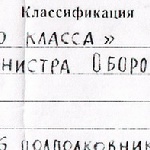 Классификация
О КЛАССА »
НИСТРА ОБОРО
Б ПОДПОЛКОВНИК